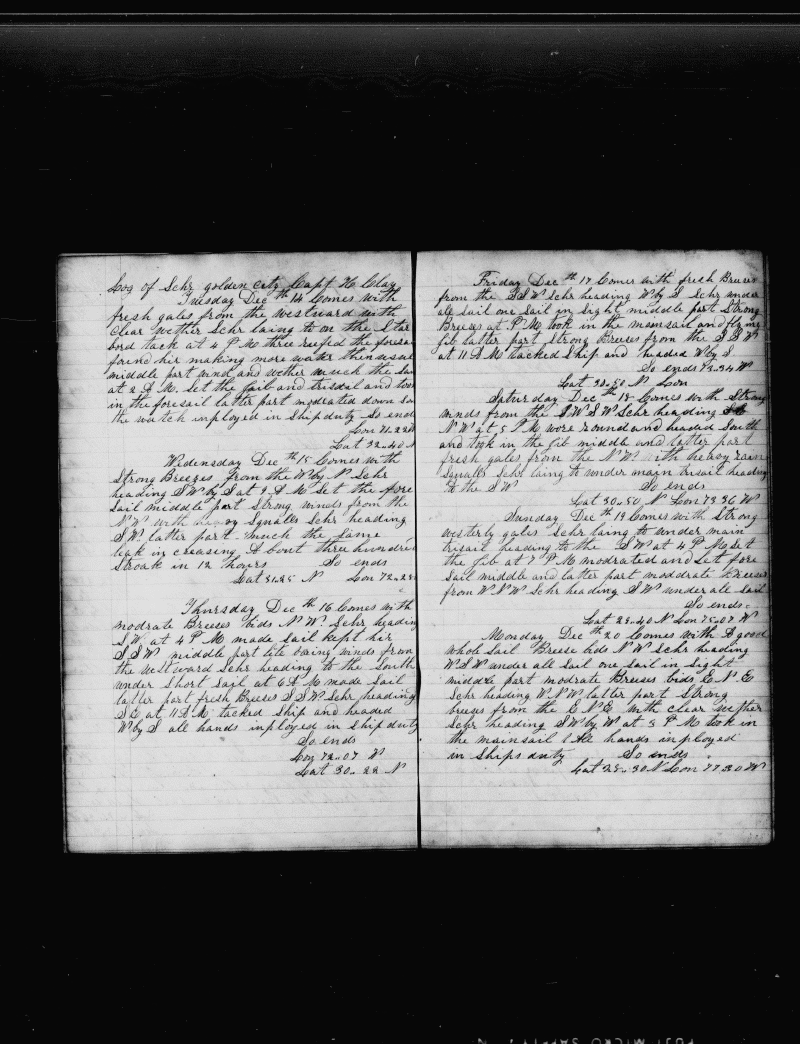 Log of Schr golden city Capt H Clay
Tuesday Dec th 14 Comes with
fresh gales from the westward with
Clear wether Schr laing to on the Star
bord tack at 4 P M three reefed the foresa
found hir making more water then usal
middle part wind and wether much the Sa
at 2 A M. Set the jib and and took
in the foresail latter part modrated down So
the watch inployed in Ship duty So end
Lon 71.28 W
Lat 32.40 N
Wedensday Dec th 15 Comes with
Strong Breezes from the W by N Schr
heading S W by S at 9 A M Set the fore
Sail middle part Strong winds from the
N W with heavy Squalls Schr heading
S W. latter part much the Same
leak in creasing A bout three hundred
Stroak in 12 hours So ends
Lat 31.25 N Lon 72.28
Thursday Dec th 16 Comes with
modrate Breeses bids N W. Schr heading
S W. at 4 P M made sail kept hir
S S W middle part lite winds from
the westward Schr heading to the South
under Short Sail at 6 A M made Sail
latter part fresh Breeses S S W Schr heading
S E at 11 A M. tacked Ship and headed
W by S all hands inployed in ship duty
So ends
Lon 72.07 W
Lat 30.22 N
Friday Dec th 17 Comes with fresh Breeses
from the S S W Schr heading W by S Schr under
ale sail one Sail in Sight middle part Strong
Breeses at P M took in the mainsail and flying
jib latter part Strong Breeses from the S S W
at 11 A M tacked Ship and headed W by S
So ends 73.34 W
Lat 30.50 N Lon
Saturday Dec th 18 Comes with Strong
winds from the S W S W Schr heading
N W at 5 P M wore round and headed South
and took in the jib middle and latter part
fresh gales from the N W. with heavy rain
Squalls Schr laing to under main trisail heading
to the S W So ends
Lat 30.50 N Lon 73 36 W
Sunday Dec th 19 Comes with Strong
westerly gales Schr laing to under main
trisail heading to the S W at 4 P M Set
the jib at 7 P M modrated and Set fore
Sail middle and latter part moddrate Breeses
from W N W Schr heading S W under ale Sail
So ends.
Lat 29.40 N Lon 75.07 W
Monday Dec th 20 Comes with A good
whole Sail Breese bids N W Schr heading
W S W under all Sail one sail in Sight
middle part modrate Breeses bids E N E
Schr heading W N W latter part Strong
breeses from the E N E with clear wether
Schr heading S W by W at 3 P M took in
the mainsail All hands inployed
in Ships duty So ends
Lat 28.30 N Lon 77.30 W